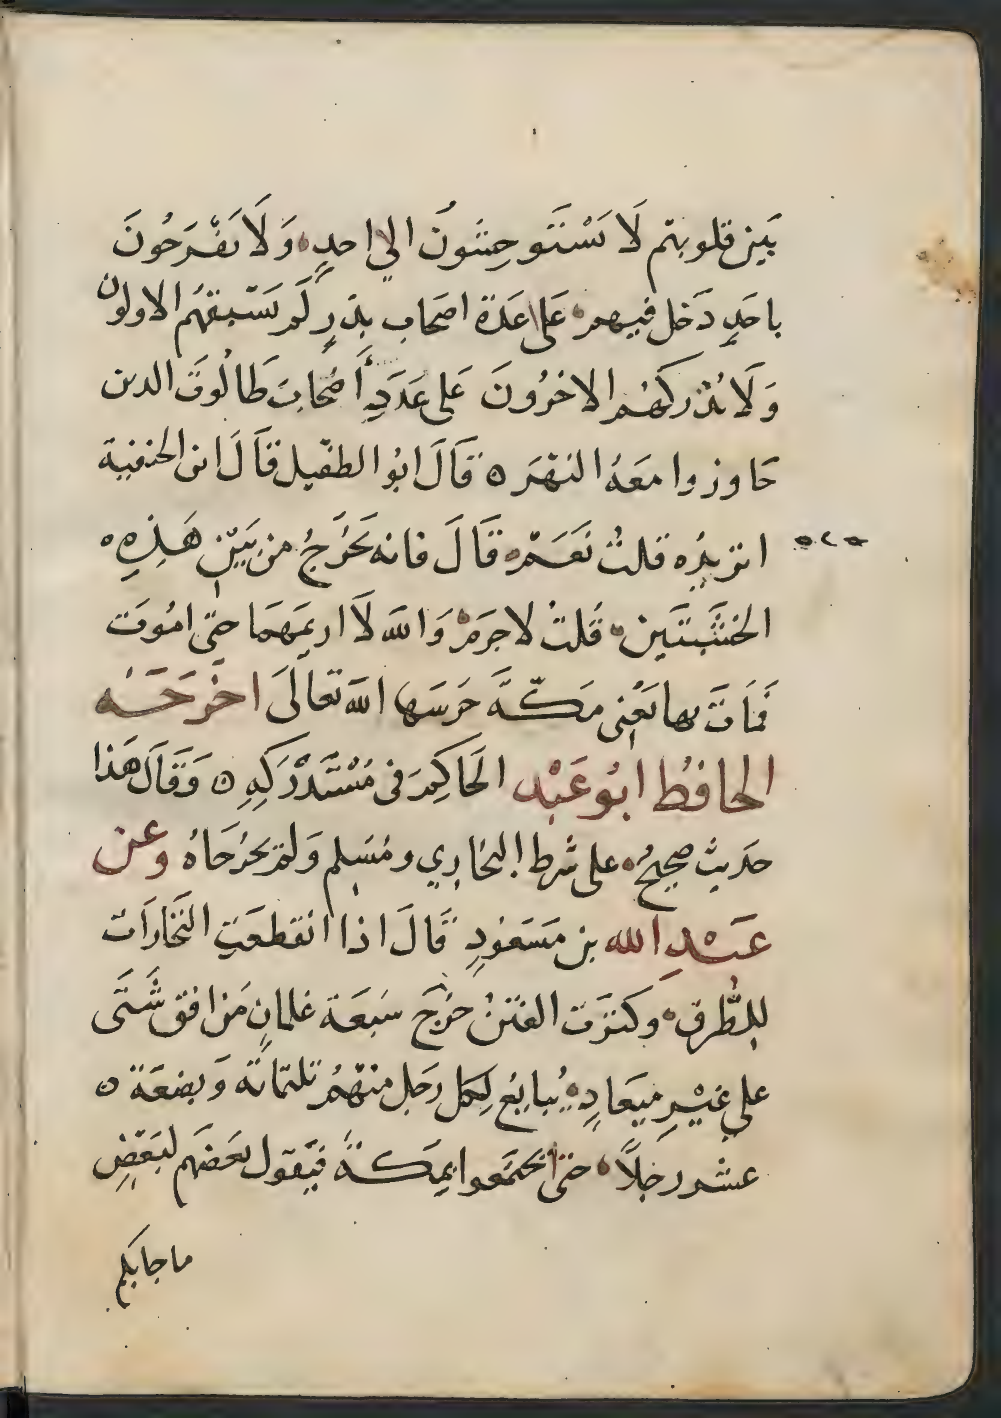 بَين قلوبهم لَا يَسْتَوحِشُونَ الي احدٍ وَلَا يَفْرَحُونَ
باحَدٍ دَخل فيهم عَلى عَدة اصحاب بدرٍ لم يَسْبقهُم الاولون
وَلَا يُدركهُم الاخرُونَ عَلى عَدَدِ أصْحابَ طَالُوتَ الدين
جَاوزوا معَهُ النهَر ه قَالَ ابُو الطفيل قَالَ ابن الحنفية
اتريدُه قلتُ نعَم ه قَالَ فانه يَخرُجُ من بَيْن هَذِهِ ه
الخشَبتَين قُلتُ لا جرَم وَالله لَا اريمَهمَا حتى امُوتَ
فمَاتَ بها يَعْني مَكّةَ حَرَسَها الله تعَالَى اخْرَجَه
الحافظ ابُو عَبْد الحَاكِم في مُسْتَدْرَكِهِ ه وَقَالَ هَذا
حَديث صحيحُ على شرط البخاري ومُسْلم وَلم يخرُجَاهُ وعن
عَبْد الله بن مَسَعُودٍ قَالَ اذا انقطعَت التجَارَات
للطُّرق وكثرَت الفتنُ خرَجَ سَبعَة غلمانٍ من افق شَتّى
علي غَيْرِ مِيعَادٍ يُبايعُ لِكل رجَل منهُم ثلثماية وَبضعَة ه
عشر رَجلاً حتى يجتمَعوا بمِكَةَ فيَقول بعَضَهم لبَعَضٍ
ما جابكم